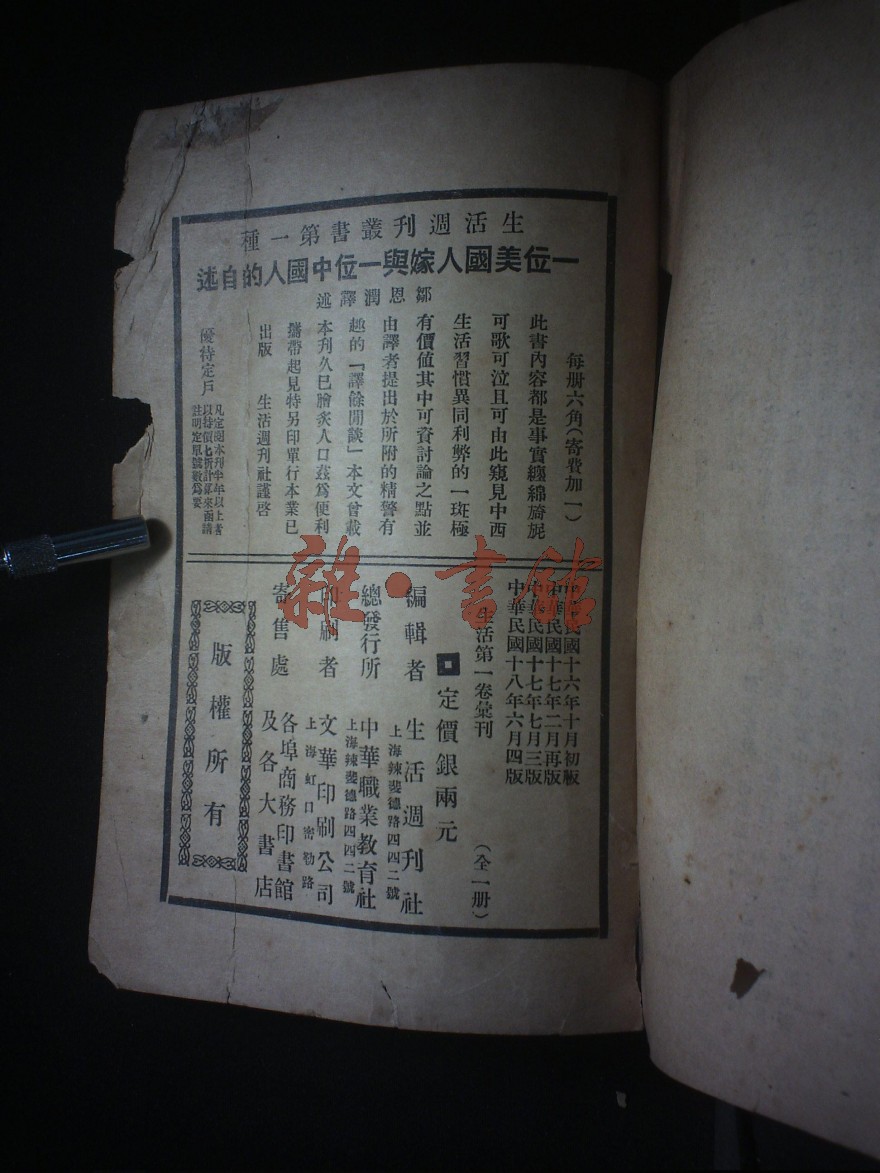 生活週刊叢書第一種
一位美國人嫁與一位中國人的自述
鄒恩潤譯述
每册六角(寄費加一)
此書內容都是事實纏綿旖旎
可歌可泣且可由此窺見中西
生活習慣異同利弊的一斑極
有價值其中可資討論之點並
由譯者提出於所附的精警有
趣的「譯餘閒談」本文曾載
本刊久已膾炙人口茲為便利
攜帶起見特另印單行本業已
出版 生活週刊社謹啓
優待定戶
凡定閱本刊半年以上者
以特價七折計算來函請
註明定單號數為要
中華民國十六年十月初版
中華民國十七年二月再版
中華民國十七年七月三版
中華民國十八年六月四版
生活第一卷彙刊 (全一册)
定價銀兩元
編輯者 生活週刊社
上海辣斐德路四四二號
總發行所 中華職業教育社
上海辣斐德路四四二號
印刷者 文華印刷公司
上海虹口密勒路
寄售處 各埠商務印書館
及各大書店
版權所有
雜·書館